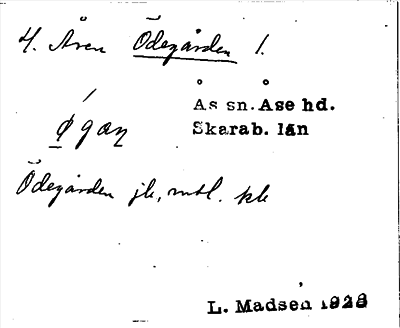 4. Åven Ödegården 1.
Ås sn. Åse hd.
Skarab. län
Ödegården jb, mtl. kb
L. Madsén 1928